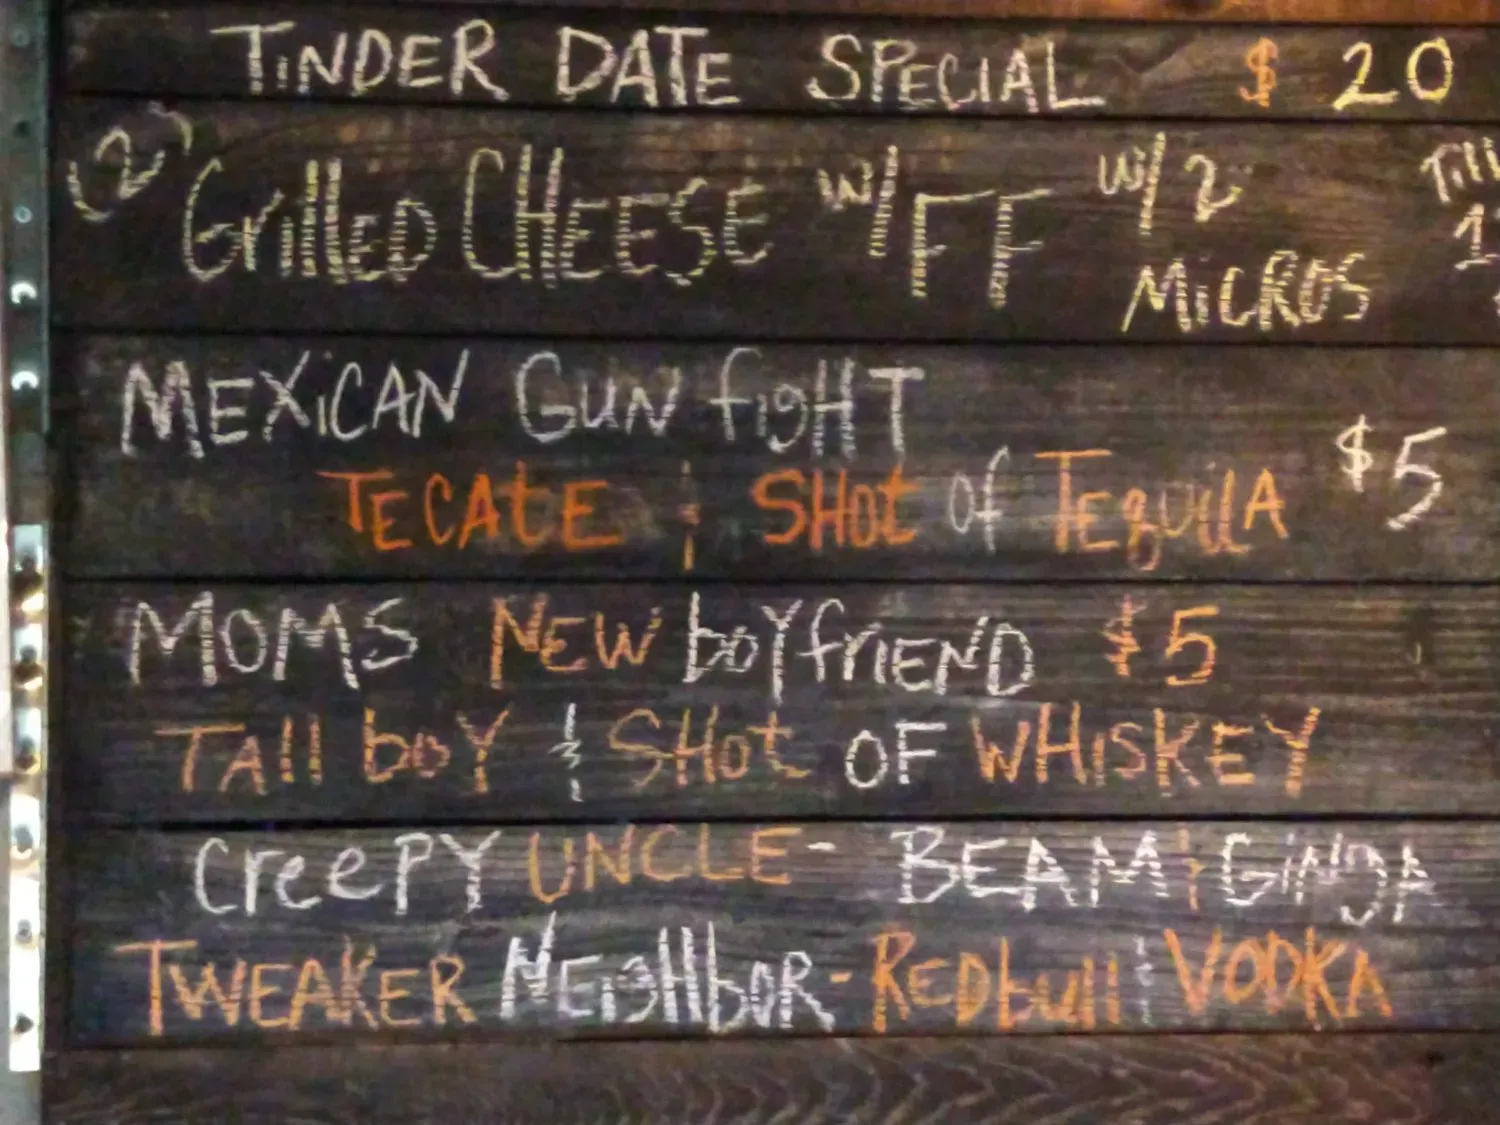 TiNDER DATE SPECIAL $ 20
(2) GrillED CHEESE w/ FF w/ 2 MiCROS
MEXiCAN GUN figHT
TECAtE & SHot of TEquilA $5
MOMS NEW boYfriEND $5
TAll boY & SHot OF WHiSKEY
CreePY UNCLE - BEAM & GiNJA
TWEAKER NEigHboR - REDbull & VODKA